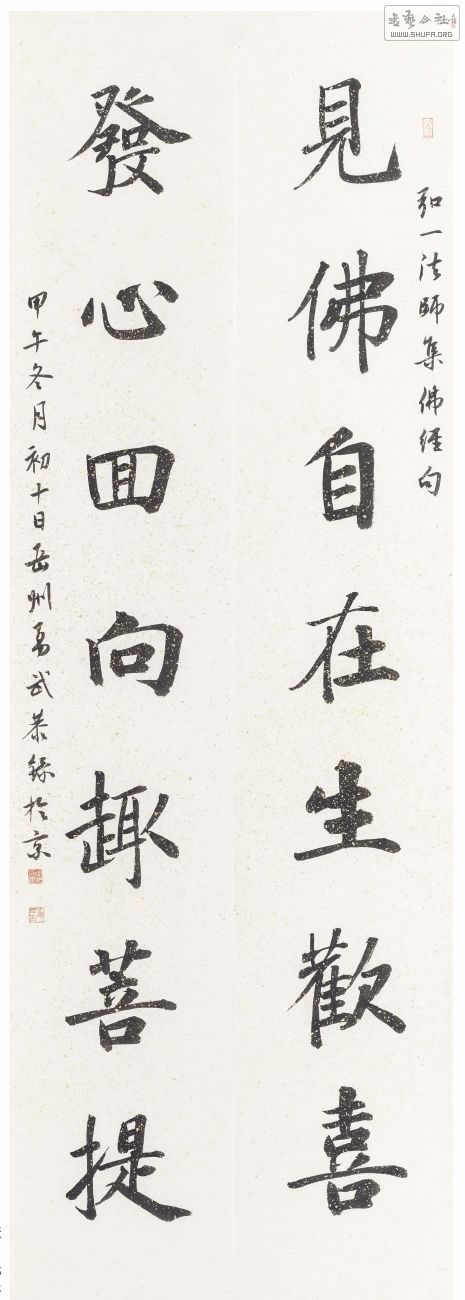 書藝公社
WWW.SHUFA.ORG
弘一法師集佛經句
見佛自在生歡喜
發心回向趣菩提
甲午冬月初十日岳州武恭錄於京